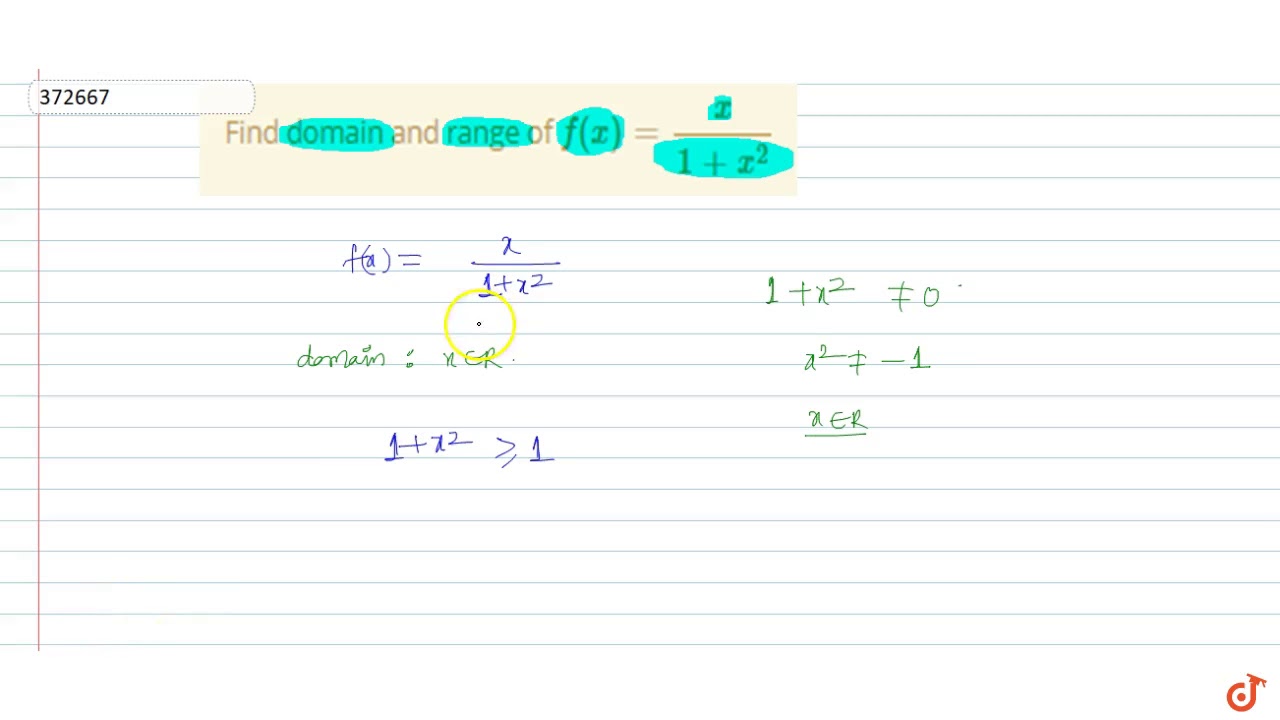 372667
Find domain and range of f(x) = x / (1 + x²)
f(x) = x / (1+x²)
1 + x² ≠ 0
domain : x∈R.
x² ≠ −1
x∈R
1+x² ⩾ 1